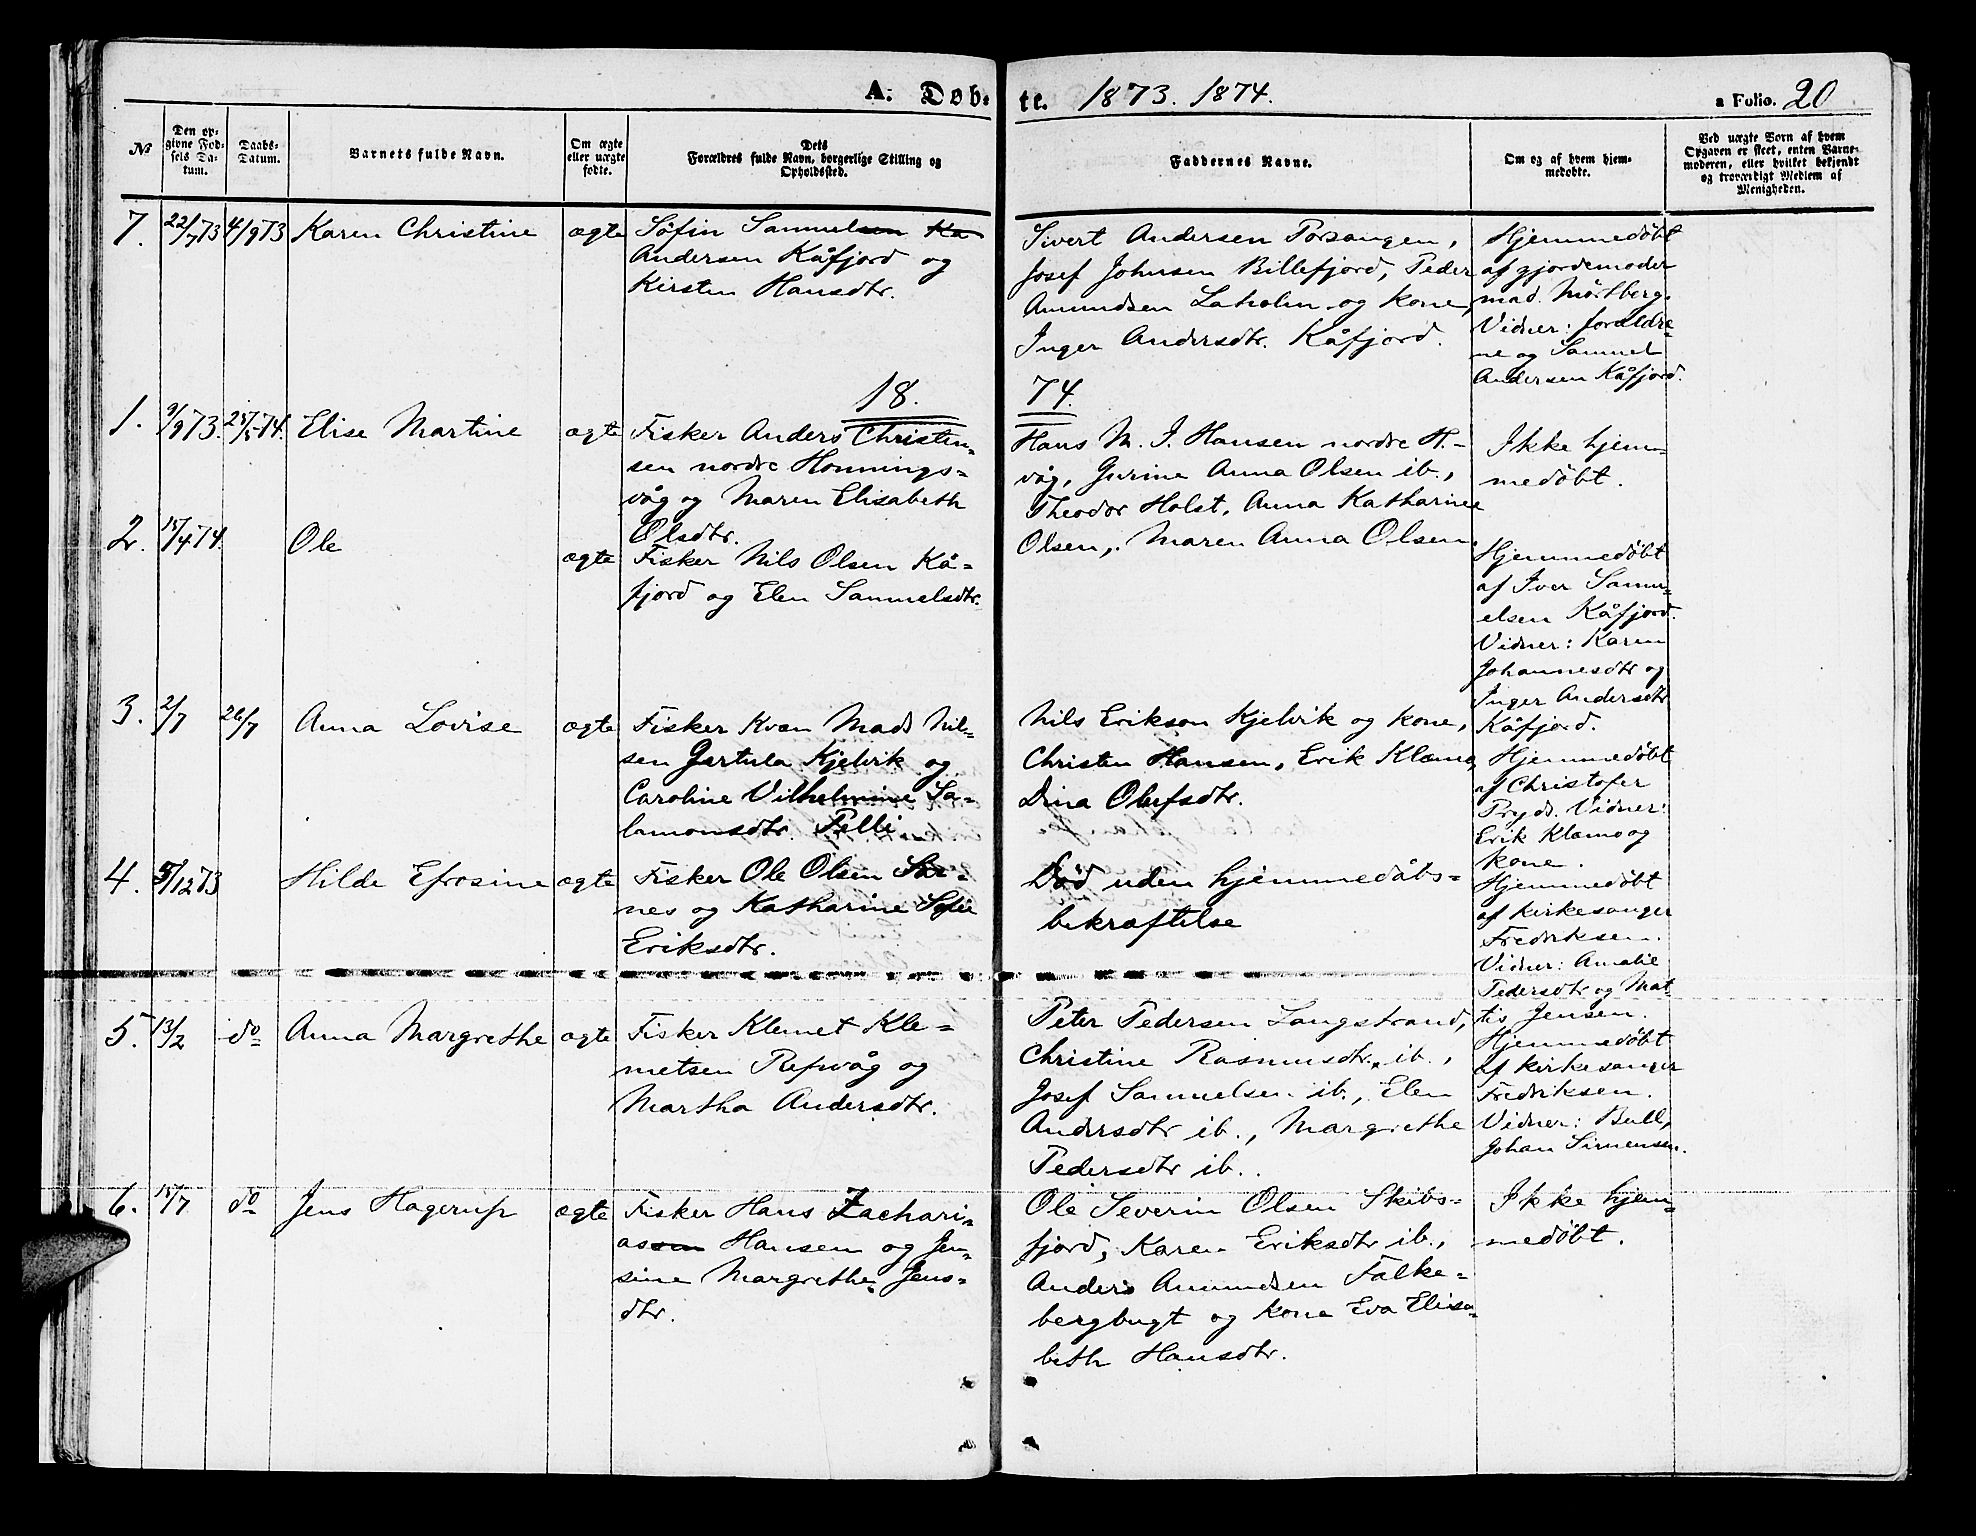 A. Døb- te. 1873. 1874. a Folio. 20
No
Den op-
givne Fød-
sels Da-
tum.
Daabs-
Datum.
Barnets fulde Navn.
Om ægte
eller uægte
fødte.
Dets
Forældres fulde Navn, borgerlige Stilling og
Opholdssted.
Faddernes Navne.
Om og af hvem hjem-
medøbte.
Ved uægte Børn af hvem
Opgaven er skeet, enten Barne-
moderen, eller hvilket bekjendt
og troværdigt Medlem af
Menigheden.
7. 22/7 73 4/9 73 Karen Christine ægte
Sofin Samuelsen Ka
Andersen Kåfjord og
Kirsten Hansdtr.
Sivert Andersen Porsangen,
Josef Johnsen Billefjord, Peder
Amundsen Laholm og kone,
Inger Andersdtr. Kåfjord.
Hjemmedøbt
af gjordemoder
mad. Mørtberg.
Vidner: foreldre-
ne og Samuel
Andersen Kåfjord.
18. 74.
1. 9/9 73. 25/5 74. Elise Martine ægte
Fisker Anders Christen-
sen nordre Honnings-
våg og Maren Elisabeth
Olsdtr.
Hans M. J. Hansen nordre H.-
våg, Gurine Anna Olsen ib.,
Theodor Holst, Anna Katharine
Olsen, Maren Anna Olsen.
Ikke hjem-
medøbt.
2. 15/4 74. Ole ægte
Fisker Nils Olsen Kå-
fjord og Elen Samuelsdtr.
Hjemmedøbt
af Iver Samu-
elsen Kåfjord.
Vidner: Karen
Johannesdtr og
Inger Andersdtr
Kåfjord.
3. 2/7 26/7 Anna Lovise ægte
Fisker Kvæn Mads Nil-
sen Gertula Kjelvik og
Caroline Vilhelmine Sa-
lamonsdtr. Pelli
Nils Erikson Kjelvik og kone,
Christen Hansen, Erik Klæmo,
Dina Olufsdtr.
Hjemmedøbt
af Christofer
Pryds. Vidner:
Erik Klæmo og
kone.
4. 5/12 73 Hilde Efrosine ægte
Fisker Ole Olsen Sar-
nes og Katharine Sofie
Eriksdtr.
Død uden hjemmedåbs-
bekræftelse
Hjemmedøbt
af kirkesanger
Fredriksen.
Vidner: Amalie
Pedersdtr og Mat-
tis Jensen.
5. 13/2 do Anna Margrethe ægte
Fisker Klemet Kle-
metsen Refsvåg og
Martha Andersdtr.
Peter Pedersen Langstrand,
Christine Rasmusdtr. ib.,
Josef Samuelsen ib., Elen
Andersdtr ib., Margrethe
Pedersdtr ib.
Hjemmedøbt
af kirkesanger
Fredriksen.
Vidner: Bull,
Johan Simensen.
6. 15/7 do Jens Hagerup ægte
Fisker Hans Zachari-
assen Hansen og Jen-
sine Margrethe Jens-
dtr.
Ole Severin Olsen Skibs-
fjord, Karen Eriksdtr ib.,
Anders Amundsen Falke-
bergbugt og kone Eva Elisa-
beth Hansdtr.
Ikke hjem-
medøbt.